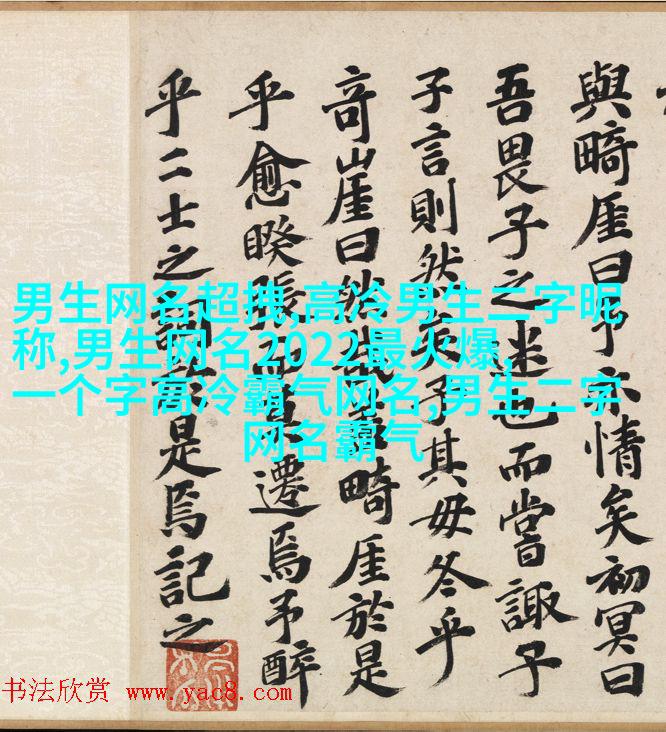 與畸厓曰予亦情矣初冥曰
吾畏子之迷也而嘗諏子
子言則然矣子其毋冬乎
竒崖曰然哉畸厓於是
乎愈睽張而遷焉予醉
乎二士之是焉記之
男生网名超拽,高冷男生二字昵
称,男生网名2022最火爆,
一个字高冷霸气网名,男生二字
网名霸气
书法欣赏 www.yac8.com